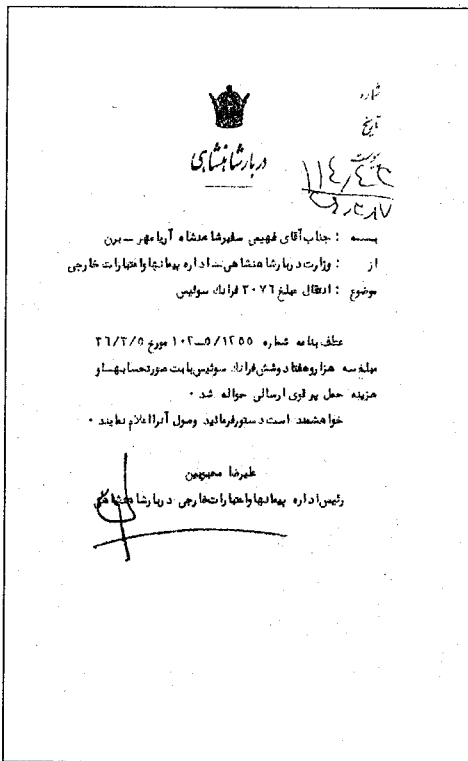 شماره
تاریخ
پیوست
دربار شاهنشاهی
بسمه : جناب آقای فهیمی سفیر شاهنشاه آریامهر ــ برن
از : وزارت دربار شاهنشاهی ــ اداره پیمانها و اعتبارات خارجی
موضوع : انتقال مبلغ ۳۰۷۶ فرانك سوئیس
عطف بنامه شماره ۱۰۲ــ۵/۱۲۵۵ مورخ ۳۶/۲/۵
مبلغ سه هزار و هفتاد و شش فرانك سوئیس بابت صورتحسابها و
هزینه حمل پرقوی ارسالی حواله شد ۰
خواهشمند است دستور فرمائید وصول آنرا اعلام نمایند ۰
علیرضا محبوبین
رئیس اداره پیمانها و اعتبارات خارجی دربار شاهنشاهی